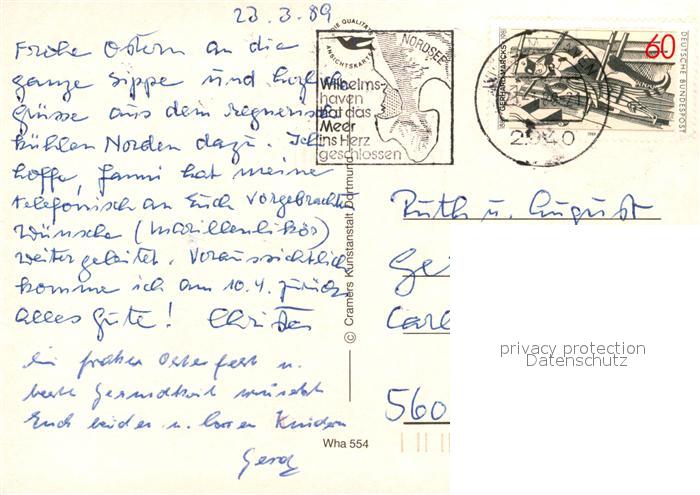 23.3.89
Frohe Ostern an die
ganze Sippe und herzliche
Grüsse aus dem regnerisch
kühlen Norden dazu. Ich
hoffe, Fanni hat meine
telefonisch an Euch vorgebrachten
Wünsche (Marillenlikör)
weitergeleitet. Voraussichtlich
komme ich am 10.4. zurück
Alles Gute! Christa
Ein frohes Osterfest u.
beste Gesundheit wünscht
Euch beiden u. Euren Kindern
Gerd
DIE QUALITÄTS
ANSICHTSKARTE
NORDSEE
Wilhelms-
haven
hat das
Meer
ins Herz
geschlossen
2940
GERHARD MARCKS
60
DEUTSCHE BUNDESPOST
© Cramers Kunstanstalt Dortmund
Wha 554
Ruth u. August
Ge
Carl
560
privacy protection
Datenschutz